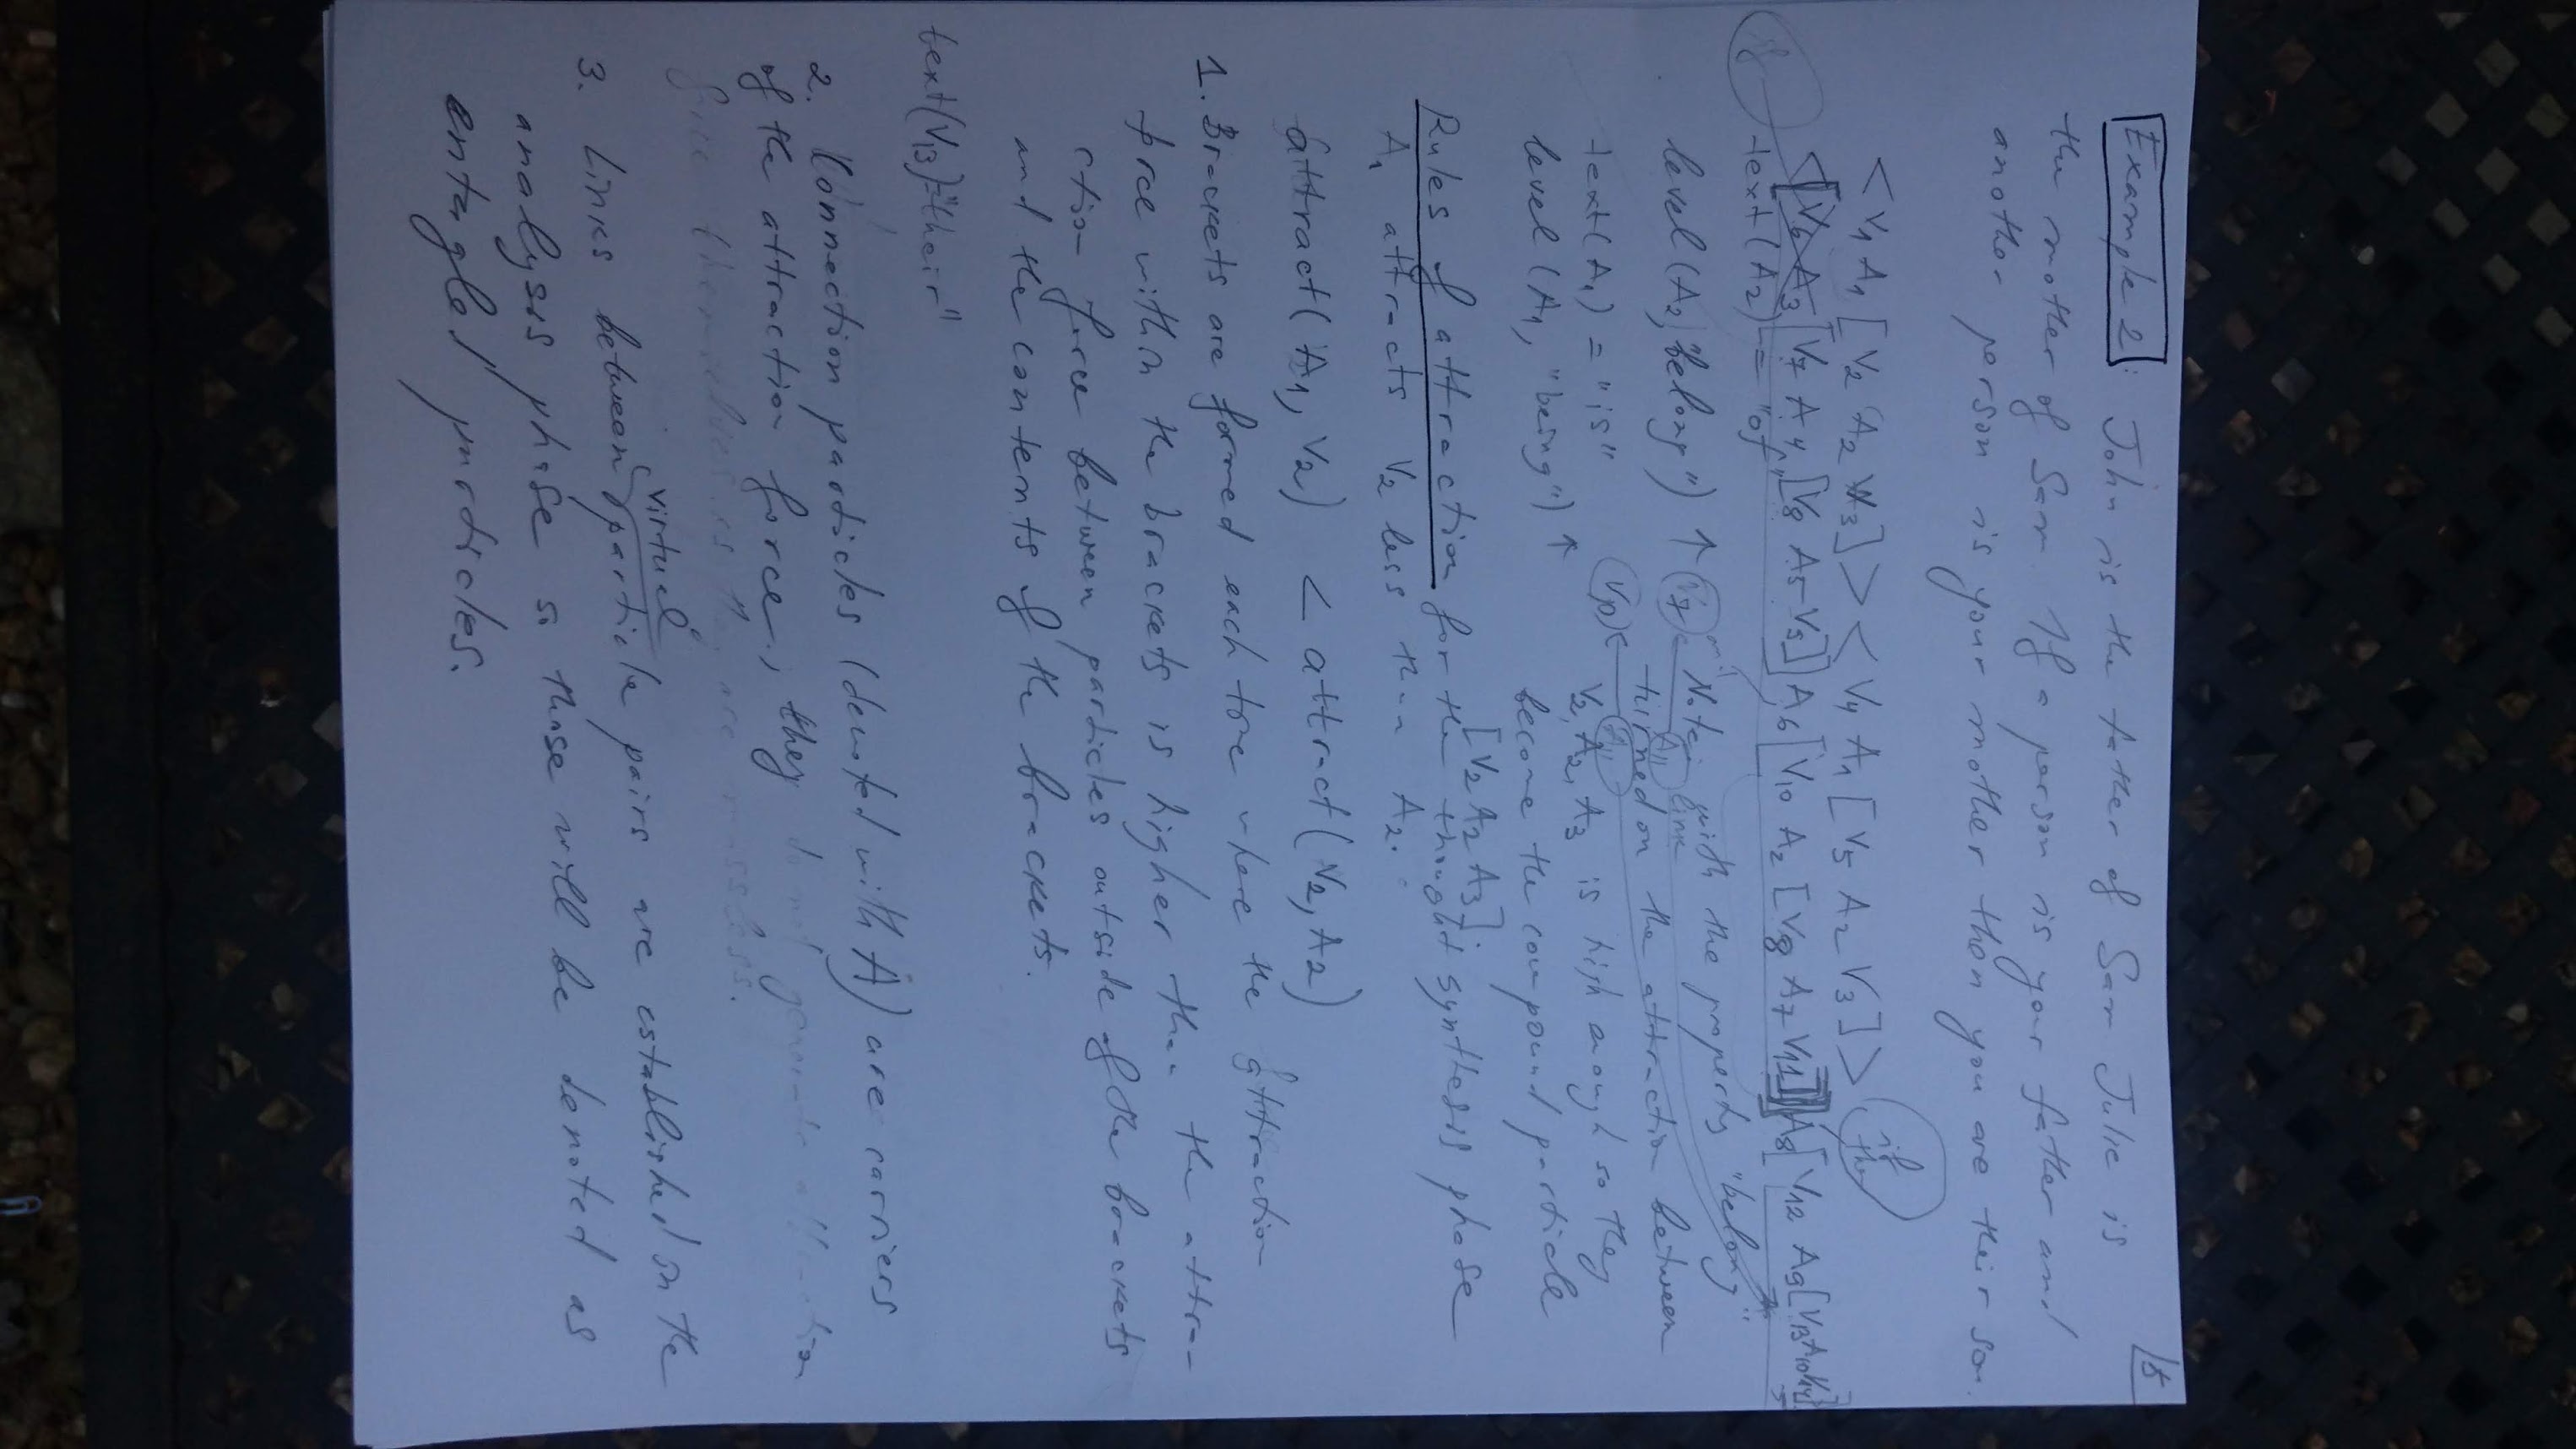 15
Example 2: John is the father of Sam Julie is
the mother of Sam. If a person is your father and
another person is your mother then you are their son.
<V1 A1 [V2 A2 V3]> <V4 A1 [V5 A2 V3]> if then
if <[V6 A3 [V7 A4 [V8 A5 V9]] A6 [V10 A2 [V8 A7 V11]] A8 [V12 A9 [V13 A10 V14]
text(A2) = "of"
level(A2, "belong") ↑ Note: with the property "belong"
turned on the attraction between
text(A1) = "is" V2, A2, A3 is high enough so they
level(A1, "being") ↑ become the compound particle
[V2 A2 A3].
Rules of attraction for the thought synthesis phase
A1 attracts V2 less than A2.
attract(A1, V2) < attract(V2, A2)
1. Brackets are formed each time where the attraction
force within the brackets is higher than the attra-
ction force between particles outside of the brackets
and the contents of the brackets.
text(V13)="their"
2. Connection particles (denoted with A) are carriers
of the attraction force, they do not generate attraction
force themselves as they are massless.
3. Links between virtual particle pairs are established on the
analysis phase so these will be denoted as
entagled particles.